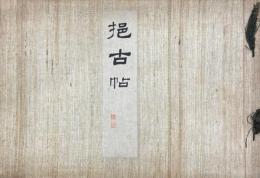 挹古帖